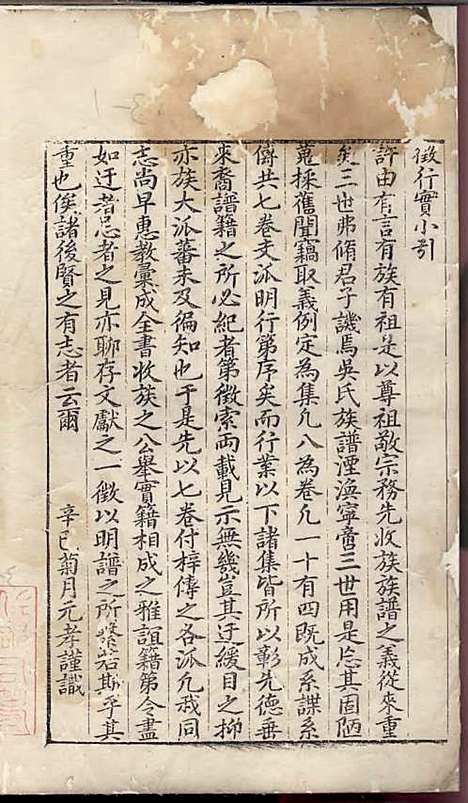 徵行實小引
許由有言有族有祖是以尊祖敬宗務先收族族譜之義從來重
矣三世弗脩君子譏焉吳氏族譜湮漁寧啻三世用是忘其固陋
蒐採舊聞竊取義例定為集凡八為卷凡一十有四既成系諜系
傳共七卷支派明行第序矣而行業以下諸集皆所以彰先德垂
來裔譜籍之所必紀者第徵索両載見示無幾豈其迂緩目之抑
亦族大派蕃未及徧知也于是先以七卷付梓傳之各派凡我同
志尚早惠教彙成全書收族之公舉實籍相成之雅誼籍第令盡
如迂者忌者之見亦聊存文獻之一徵以明譜之所繫若斯乎其
重也俟諸後賢之有志者云爾
辛巳菊月元孝謹識